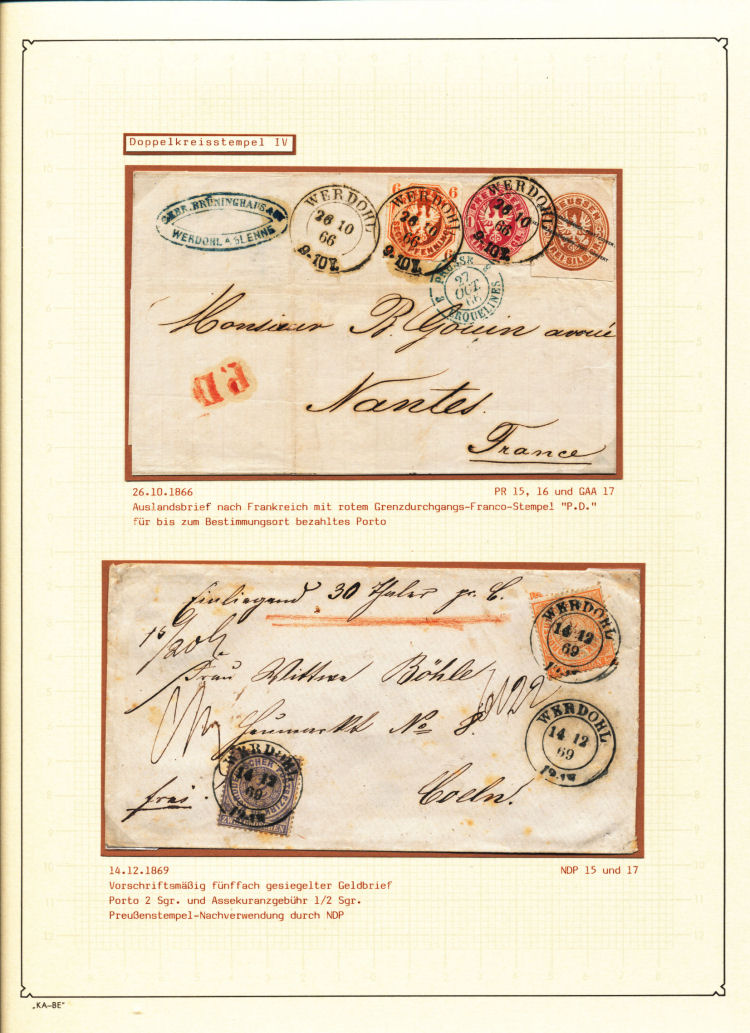 Doppelkreisstempel IV
GEBR. BRÜNINGHAUS &
WERDOHL A/LENNE
WERDOHL
26 10
66
9-10V.
6
6
WERDOHL
26 10
66
9-10V.
6
WERDOHL
26 10
66
9-10V.
PREUSSEN
PRUSSE
3 3
27
OCT.
66
ERQUELINES
Monsieur B. Gouin avoué
P.D.
Nantes.
France
26.10.1866
PR 15, 16 und GAA 17
Auslandsbrief nach Frankreich mit rotem Grenzdurchgangs-Franco-Stempel "P.D."
für bis zum Bestimmungsort bezahltes Porto
Einliegend 30 Thaler pr. C.
WERDOHL
14 12
69
Frau Wittwe Böhle
Heumarkt No 8.
WERDOHL
14 12
69
WERDOHL
14 12
69
ZWEI GROSCHEN
Coeln.
14.12.1869
NDP 15 und 17
Vorschriftsmäßig fünffach gesiegelter Geldbrief
Porto 2 Sgr. und Assekuranzgebühr 1/2 Sgr.
Preußenstempel-Nachverwendung durch NDP
„KA-BE"